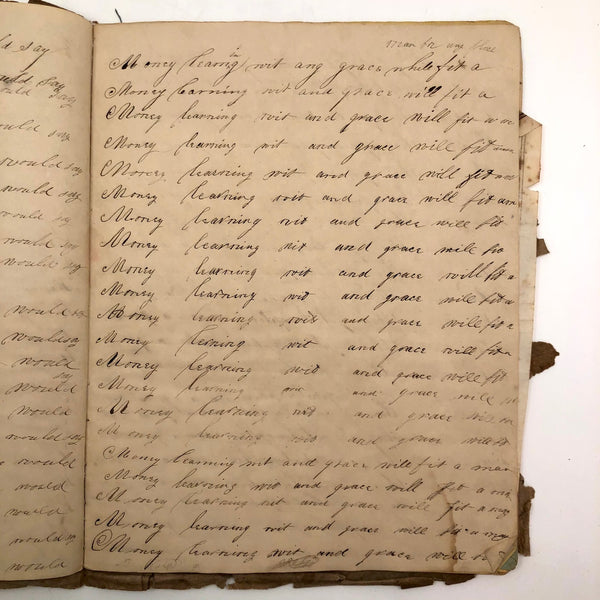 ld say
would say
would say
would say
would say
would say
would say
would say
would say
would say
would sa
would say
would
say
would
would
would say
would
would
would
would say
would
man for any
Money learnig wit ang grace while fit a
Money learning wit and grace will fit a
Money learning wit and grace will fit a m
Money learning wit and grace will fit a
Money learning wit and grace will fit a
Money learning wit and grace will fit a m
Money learning wit and grace will fit
Money learning wit and grace will fit
Money learning wit and grace will fit a
Money learning wit and grace will fit a
Money learning wit and grace will fit a
Money learning wit and grace will fit a
Money learning wit and grace will fit
Money learning wit and grace will fit
Money learning wit and grace will
Money learning wit and grace will fit
Money learning wit and grace will fit a man
Money learning wit and grace will fit a
Money learning wit and grace will fit a may
Money learning wit and grace will fit a may
Money learning wit and grace will fit